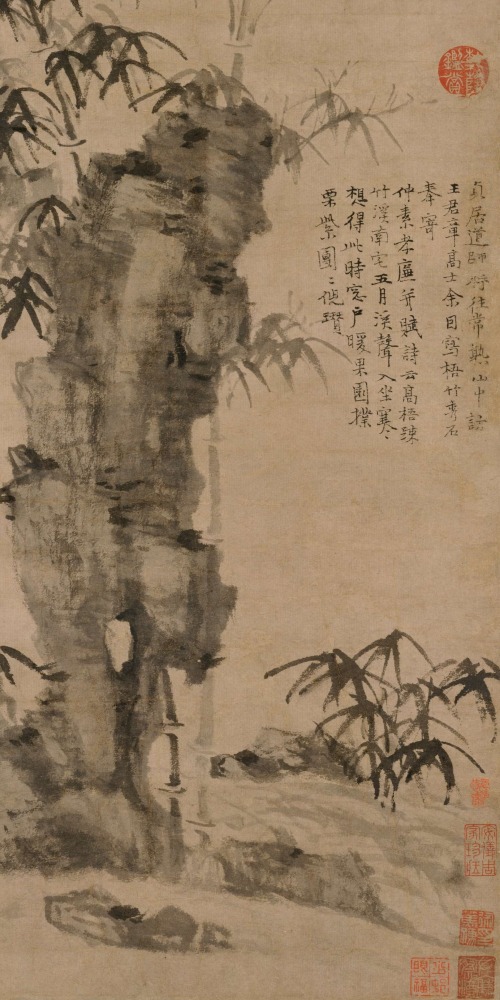 貞居道師將往常熟山中訪
王君章高士余因寫梧竹秀石
奉寄
仲素孝廉并賦詩云高梧疎
竹溪南宅五月溪聲入坐寒
想得此時窗戶暖果園撲
栗紫團團倪瓚